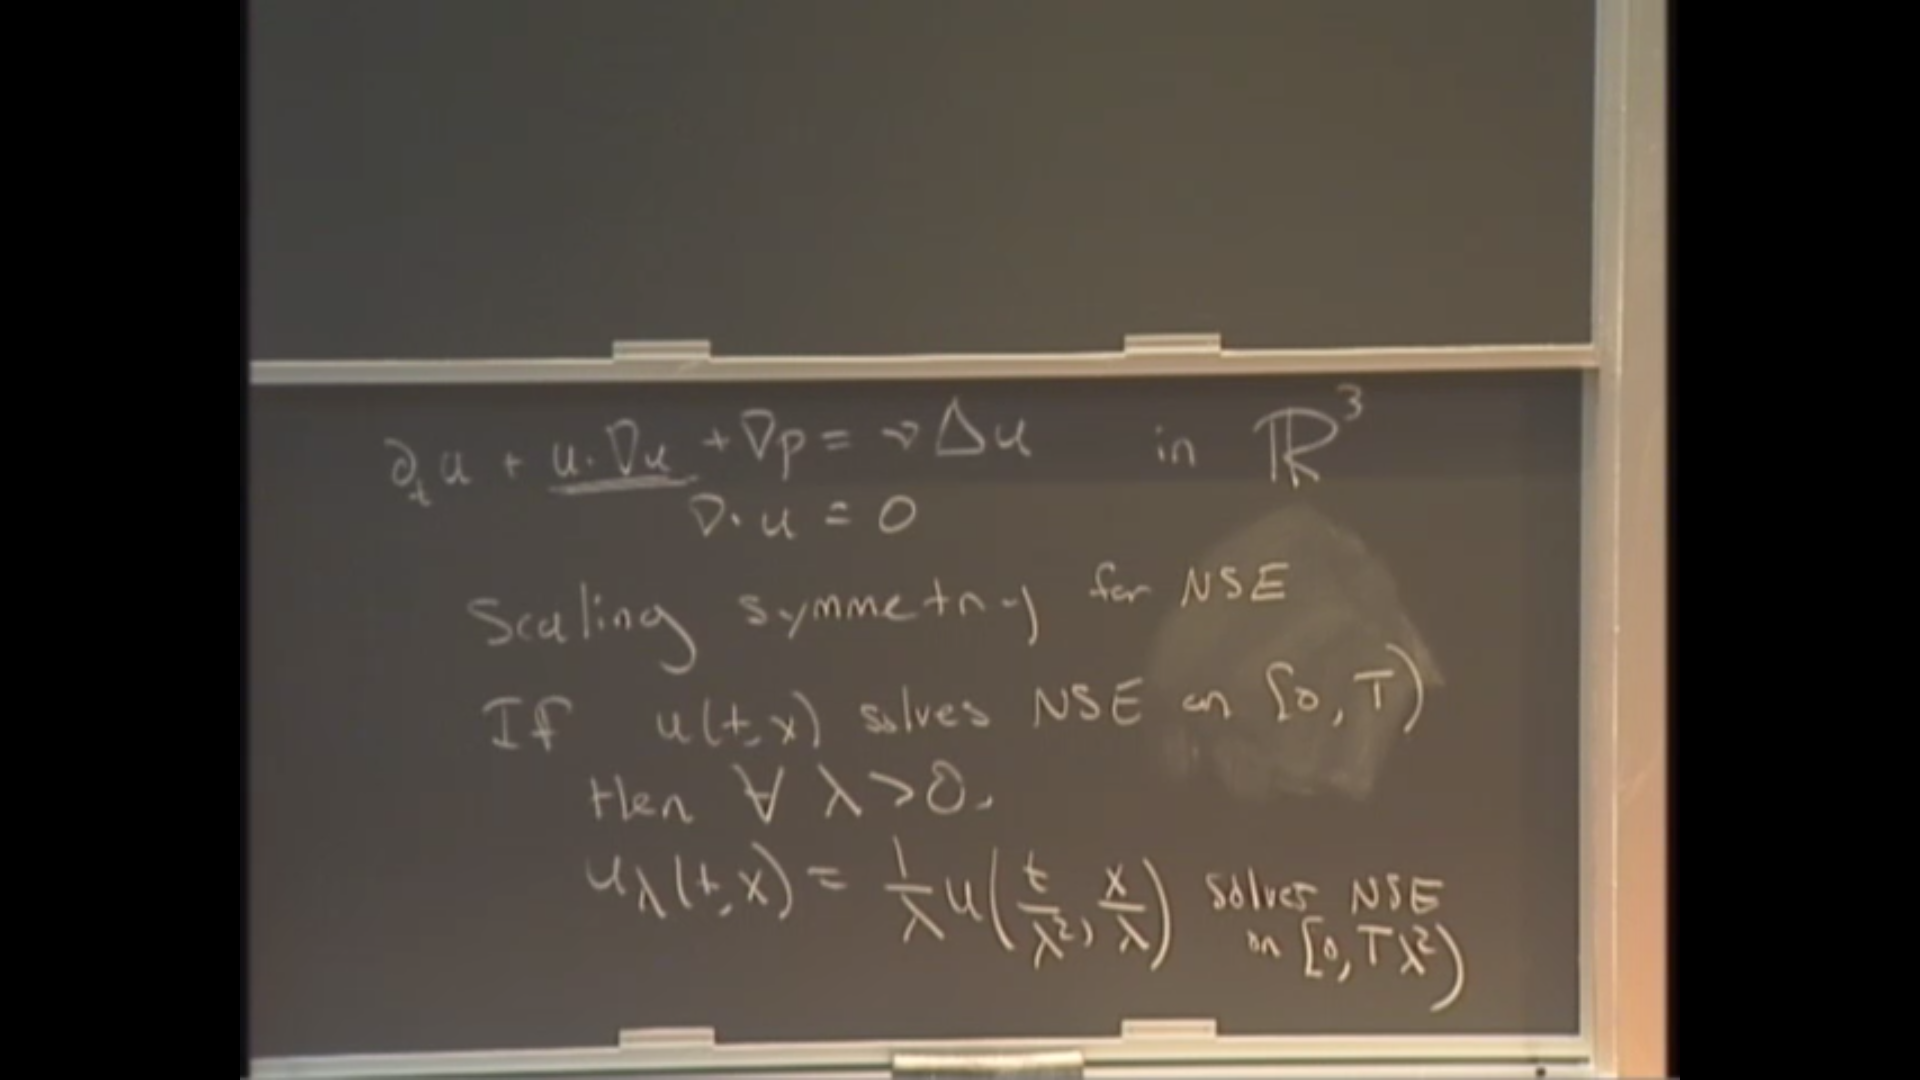 ∂ₜu + u·∇u + ∇p = ν Δu in ℝ³
∇·u = 0
Scaling symmetry for NSE
If u(t,x) solves NSE on [0,T)
then ∀ λ>0,
u_λ(t,x) = 1/λ u(t/λ², x/λ) solves NSE
on [0,Tλ²)